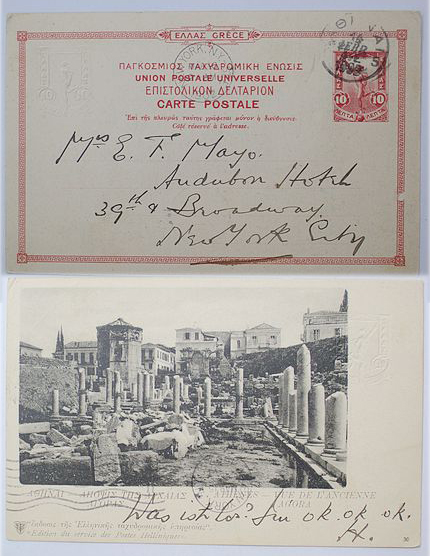 ΕΛΛΑΣ GRÈCE
ΠΑΓΚΟΣΜΙΟΣ ΤΑΧΥΔΡΟΜΙΚΗ ΕΝΩΣΙΣ
UNION POSTALE UNIVERSELLE
ΕΠΙΣΤΟΛΙΚΟΝ ΔΕΛΤΑΡΙΟΝ
CARTE POSTALE
Ἐπὶ τῆς πλευρᾶς ταύτης γράφεται μόνον ἡ διεύθυνσις.
Côté réservé à l'adresse.
10 10
ΛΕΠΤΑ ΛΕΠΤΑ
E. F. Mayo.
Audubon Hotel
39th & Broadway.
New York City
ΑΘΗΝΑΙ – ΑΠΟΨΙΣ ΤΗΣ ΑΡΧΑΙΑΣ ΑΓΟΡΑΣ
ATHÈNES – VUE DE L'ANCIENNE AGORA
ok. ok. ok.
H.
"Ἔκδοσις τῆς Ἑλληνικῆς ταχυδρομικῆς ὑπηρεσίας".
"Edition du service des Postes Helléniques".